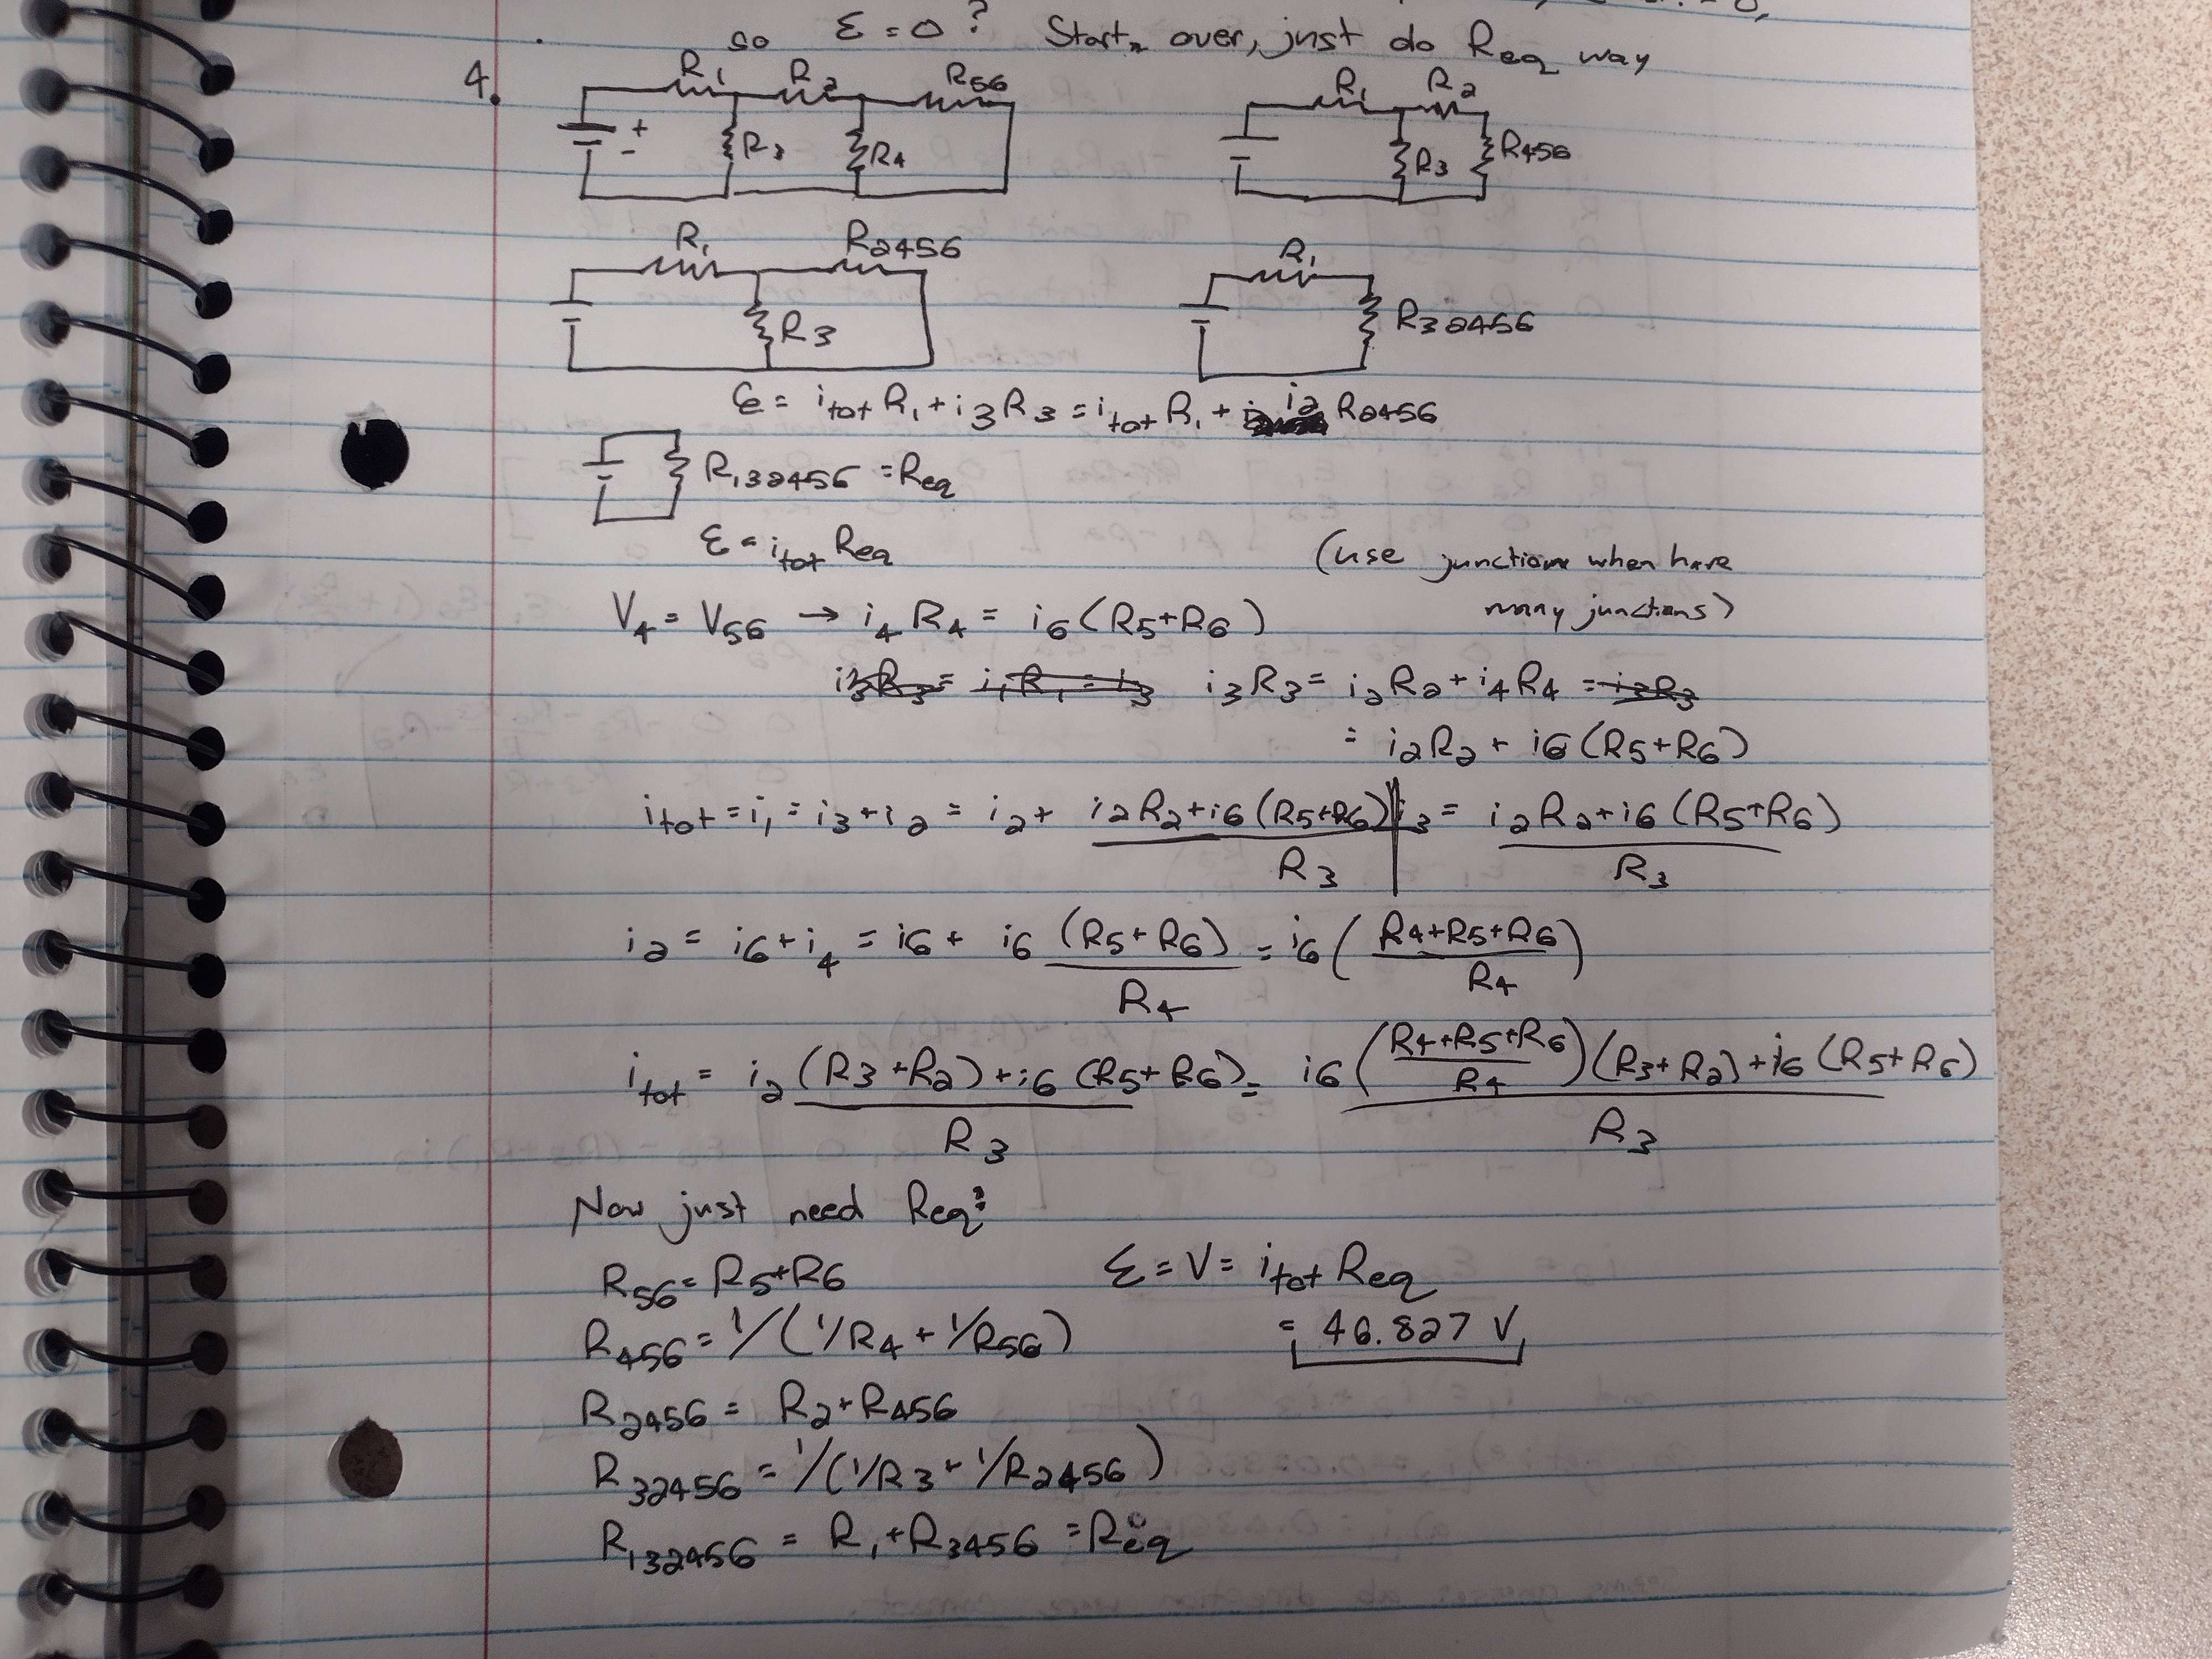 so ε = 0 ? Start over, just do Req way
4.
R1 R2 R56
+
-
R3 R4
R1 R2
R3 R456
R1 R2456
R3
R1
R32456
ε = itot R1 + i3 R3 = itot R1 + i2 R2456
R132456 = Req
ε = itot Req
(use junctions when have
many junctions)
V4 = V56 → i4 R4 = i6 (R5+R6)
i3R3 = i1R1 = i3 i3R3 = i2R2 + i4R4 = i3R3
= i2R2 + i6 (R5+R6)
itot = i1 = i3 + i2 = i2 + (i2R2 + i6 (R5+R6))/R3 | i3 = (i2R2 + i6 (R5+R6))/R3
i2 = i6 + i4 = i6 + i6 (R5+R6)/R4 = i6 ((R4+R5+R6)/R4)
itot = (i2 (R3+R2) + i6 (R5+R6))/R3 = (i6 ((R4+R5+R6)/R4)(R3+R2) + i6 (R5+R6))/R3
Now just need Req:
R56 = R5+R6
ε = V = itot Req
R456 = 1/(1/R4 + 1/R56)
= 46.827 V
R2456 = R2+R456
R32456 = 1/(1/R3 + 1/R2456)
R132456 = R1+R3456 = Req